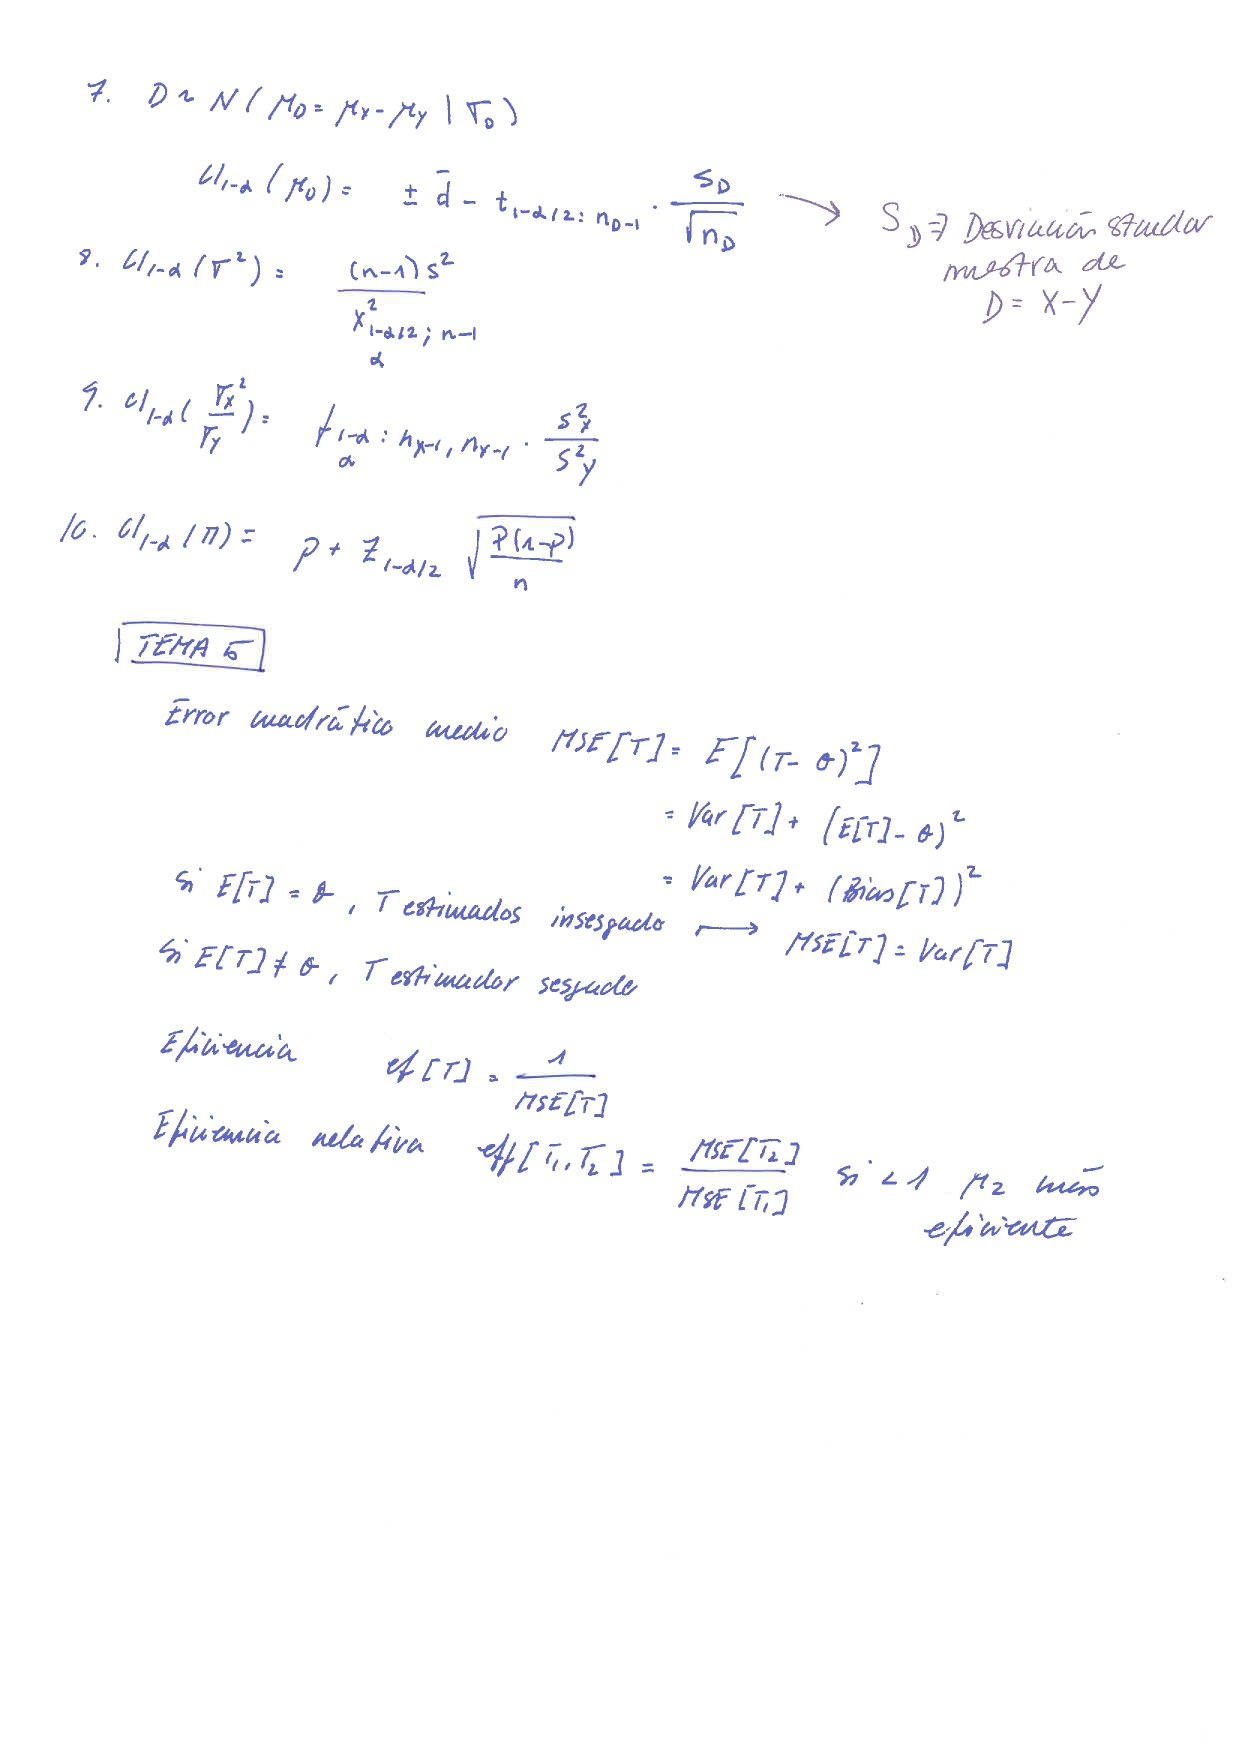 7. D ~ N ( μ_D = μ_x - μ_y | σ_D )
CI_{1-α} ( μ_D ) = ± d̄ - t_{1-α/2 : n_D-1} · S_D / √n_D → S_D ⇒ Desviación standar
muestra de
D = X - Y
8. CI_{1-α} ( σ² ) = (n-1) s² / χ²_{1-α/2 ; n-1}
α
9. CI_{1-α} ( σ_x² / σ_y ) = f_{1-α : n_x-1, n_x-1} · S²_x / S²_y
α
10. CI_{1-α} ( π ) = p + Z_{1-α/2} √( P(1-p) / n )
TEMA 5
Error cuadrático medio MSE[T] = E[(T - θ)²]
= Var[T] + (E[T] - θ)²
= Var[T] + (Bias[T])²
Si E[T] = θ , T estimados insesgado → MSE[T] = Var[T]
Si E[T] ≠ θ , T estimador sesgado
Eficiencia ef[T] = 1 / MSE[T]
Eficiencia relativa eff[T₁, T₂] = MSE[T₂] / MSE[T₁] si < 1 μ₂ más
eficiente